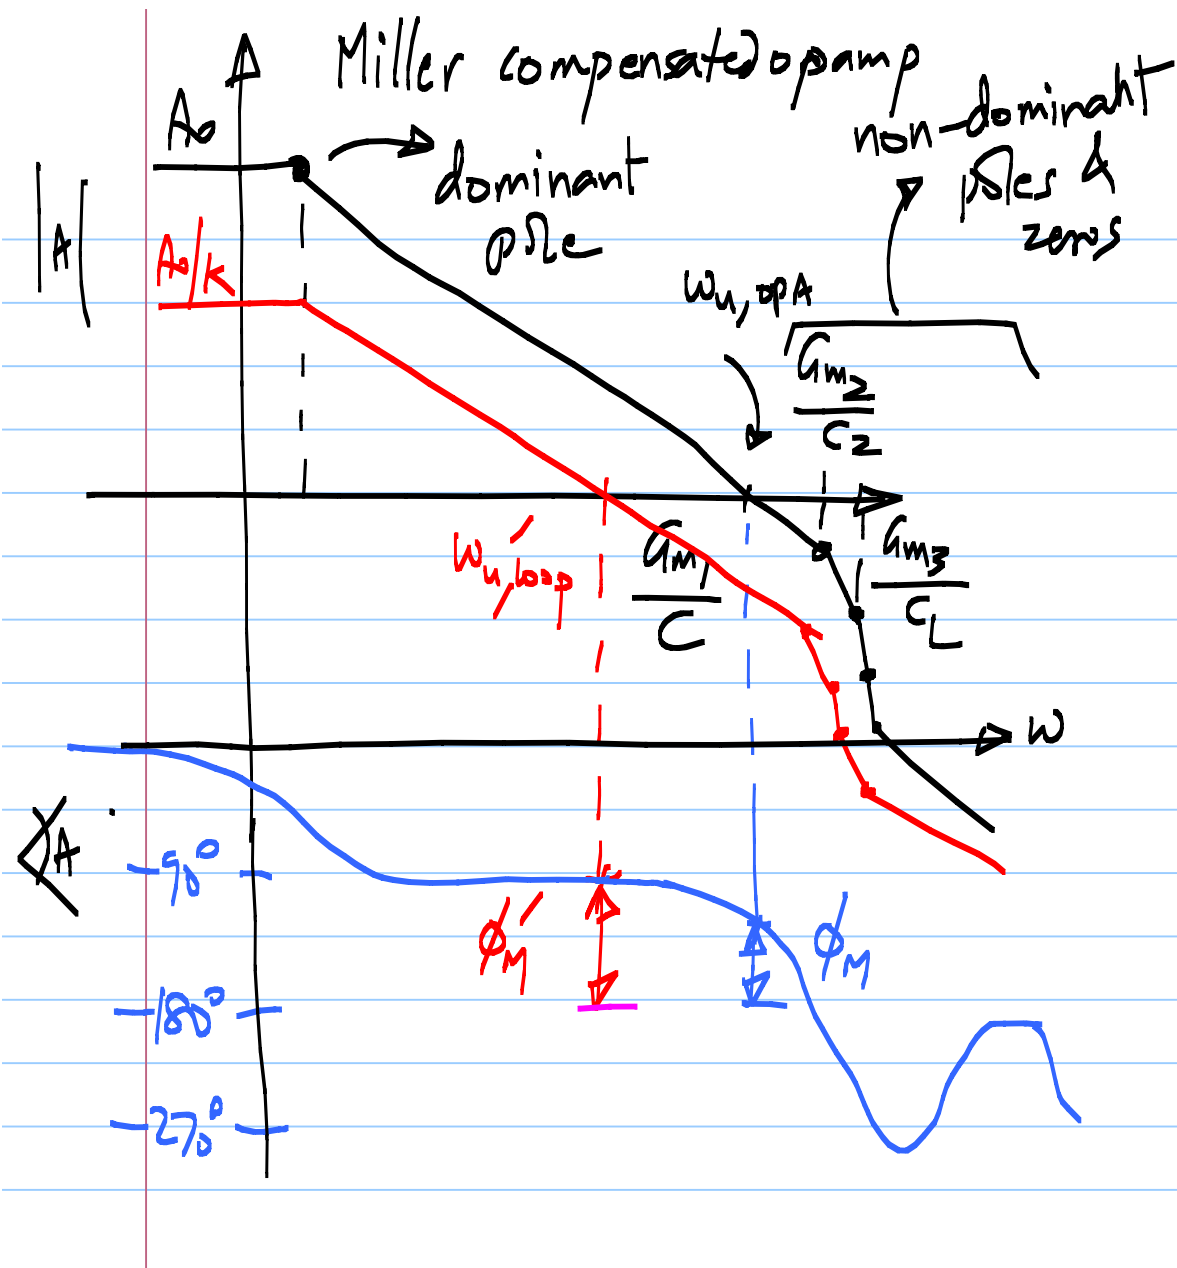 Miller compensated opamp
A₀
dominant
pole
non-dominant
poles &
zeros
|A|
A₀/k
ωu,opA
Gm2/C2
ω'u,loop
Gm1/C
Gm3/CL
ω
∢A
-90°
-180°
-270°
ϕ'M
ϕM